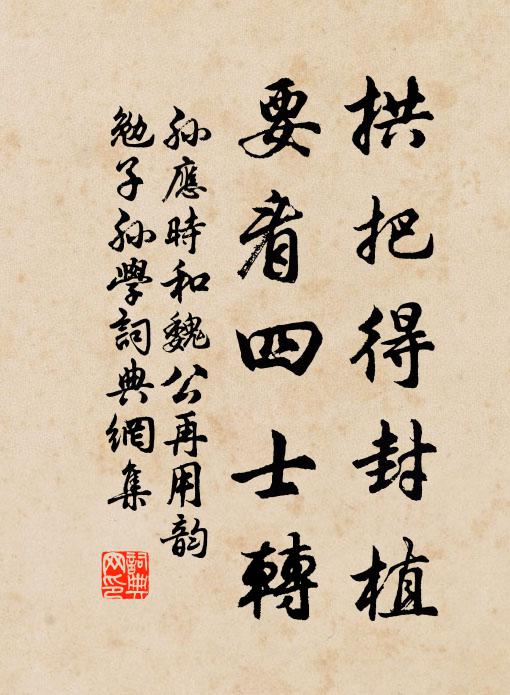 拱把得封植
要看四士轉
孫應時和魏公再用韵
勉子孫學詞典網集
詞典网印